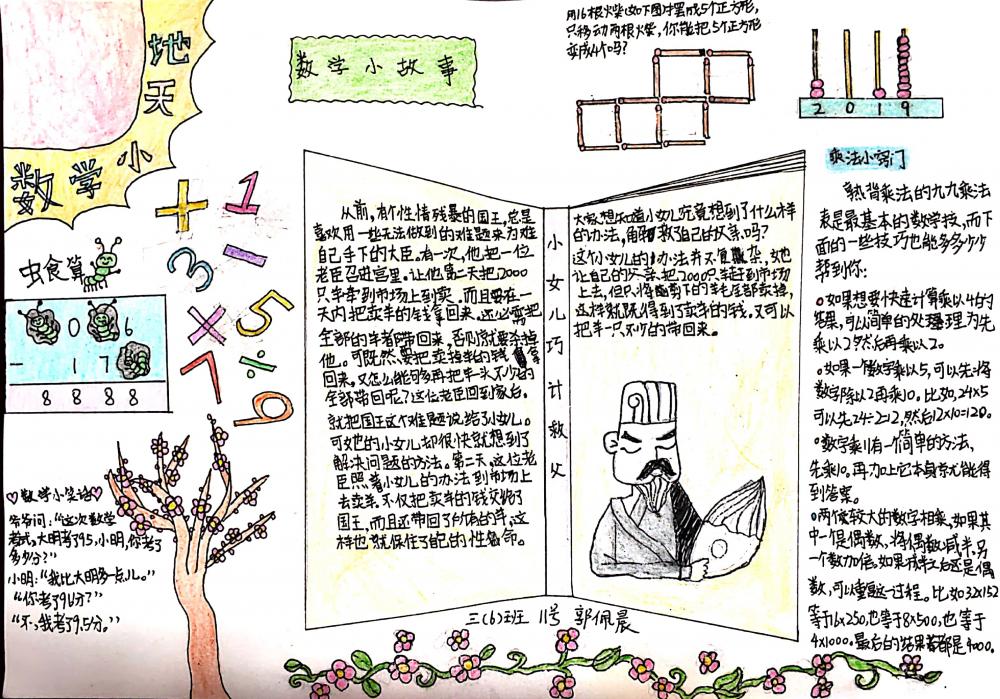 数学小
天
地
数学小故事
用16根火柴(如下图)才摆成5个正方形,
只移动两根火柴,你能把5个正方形
变成4个吗?
2 0 1 9
虫食算
0 6
- 1 7
8 8 8 8
+ 1
3 -
× 5
7 ÷ 9
♡数学小笑话♡
爷爷问:“这次数学
考试,大明考了95,小明,你考了
多少分?”
小明:“我比大明多一点儿。”
“你考了94分?”
“不,我考了9.5分。”
从前,有个性情残暴的国王,总是
喜欢用一些无法做到的难题来为难
自己手下的大臣。有一次,他把一位
老臣召进宫里。让他第二天把2000
只羊牵到市场上到卖.而且要在一
天内把卖羊的钱拿回来,还必需把
全部的羊者带回来,否则就要杀掉
他。可既然要把卖掉羊的钱拿
回来,又怎么能够再把羊一头不少的
全部带回呢?这位老臣回到家后。
就把国王这个难题说给了小女儿。
可她的小女儿却很快就想到了
解决问题的方法。第二天,这位老
臣照着小女儿的办法到市场上
去卖羊,不仅把卖羊的钱交给了
国王,而且还带回了所有的羊,这
样也就保住了自己的性命。
小女儿巧计救父
大家想知道小女儿究竟想到了什么样
的办法,救了自己的父亲吗?
这个小女儿的办法并不复杂,女她
让自己的父亲把2000只羊赶到市场
上去,但只将剪下的羊毛全部卖掉,
这样就既得到了卖羊的钱.又可以
把羊一只不少的带回来。
三(6)班 11号 郭佩晨
乘法小窍门
熟背乘法的九九乘法
表是最基本的数学技,而下
面的一些技巧也能多多少少
帮到你:
如果想要快速计算乘以4的
结果,可以简单的处理理为先
乘以2然后再乘以2。
如果一个数字乘以5,可以先将
数字除以2再乘10。比如,24×5
可以先24÷2=12,然后12×10=120。
数字乘11有一简单的方法,
先乘10,再加上它本身就能得
到答案。
两个较大的数字相乘,如果其
中一个是偶数,将偶数减半,另
一个数加倍。如果减半之后还是偶
数,可以重复这一过程。比如32×152
等于16×250,也等于8×500,也等于
4×1000。最后的结果都是4000。